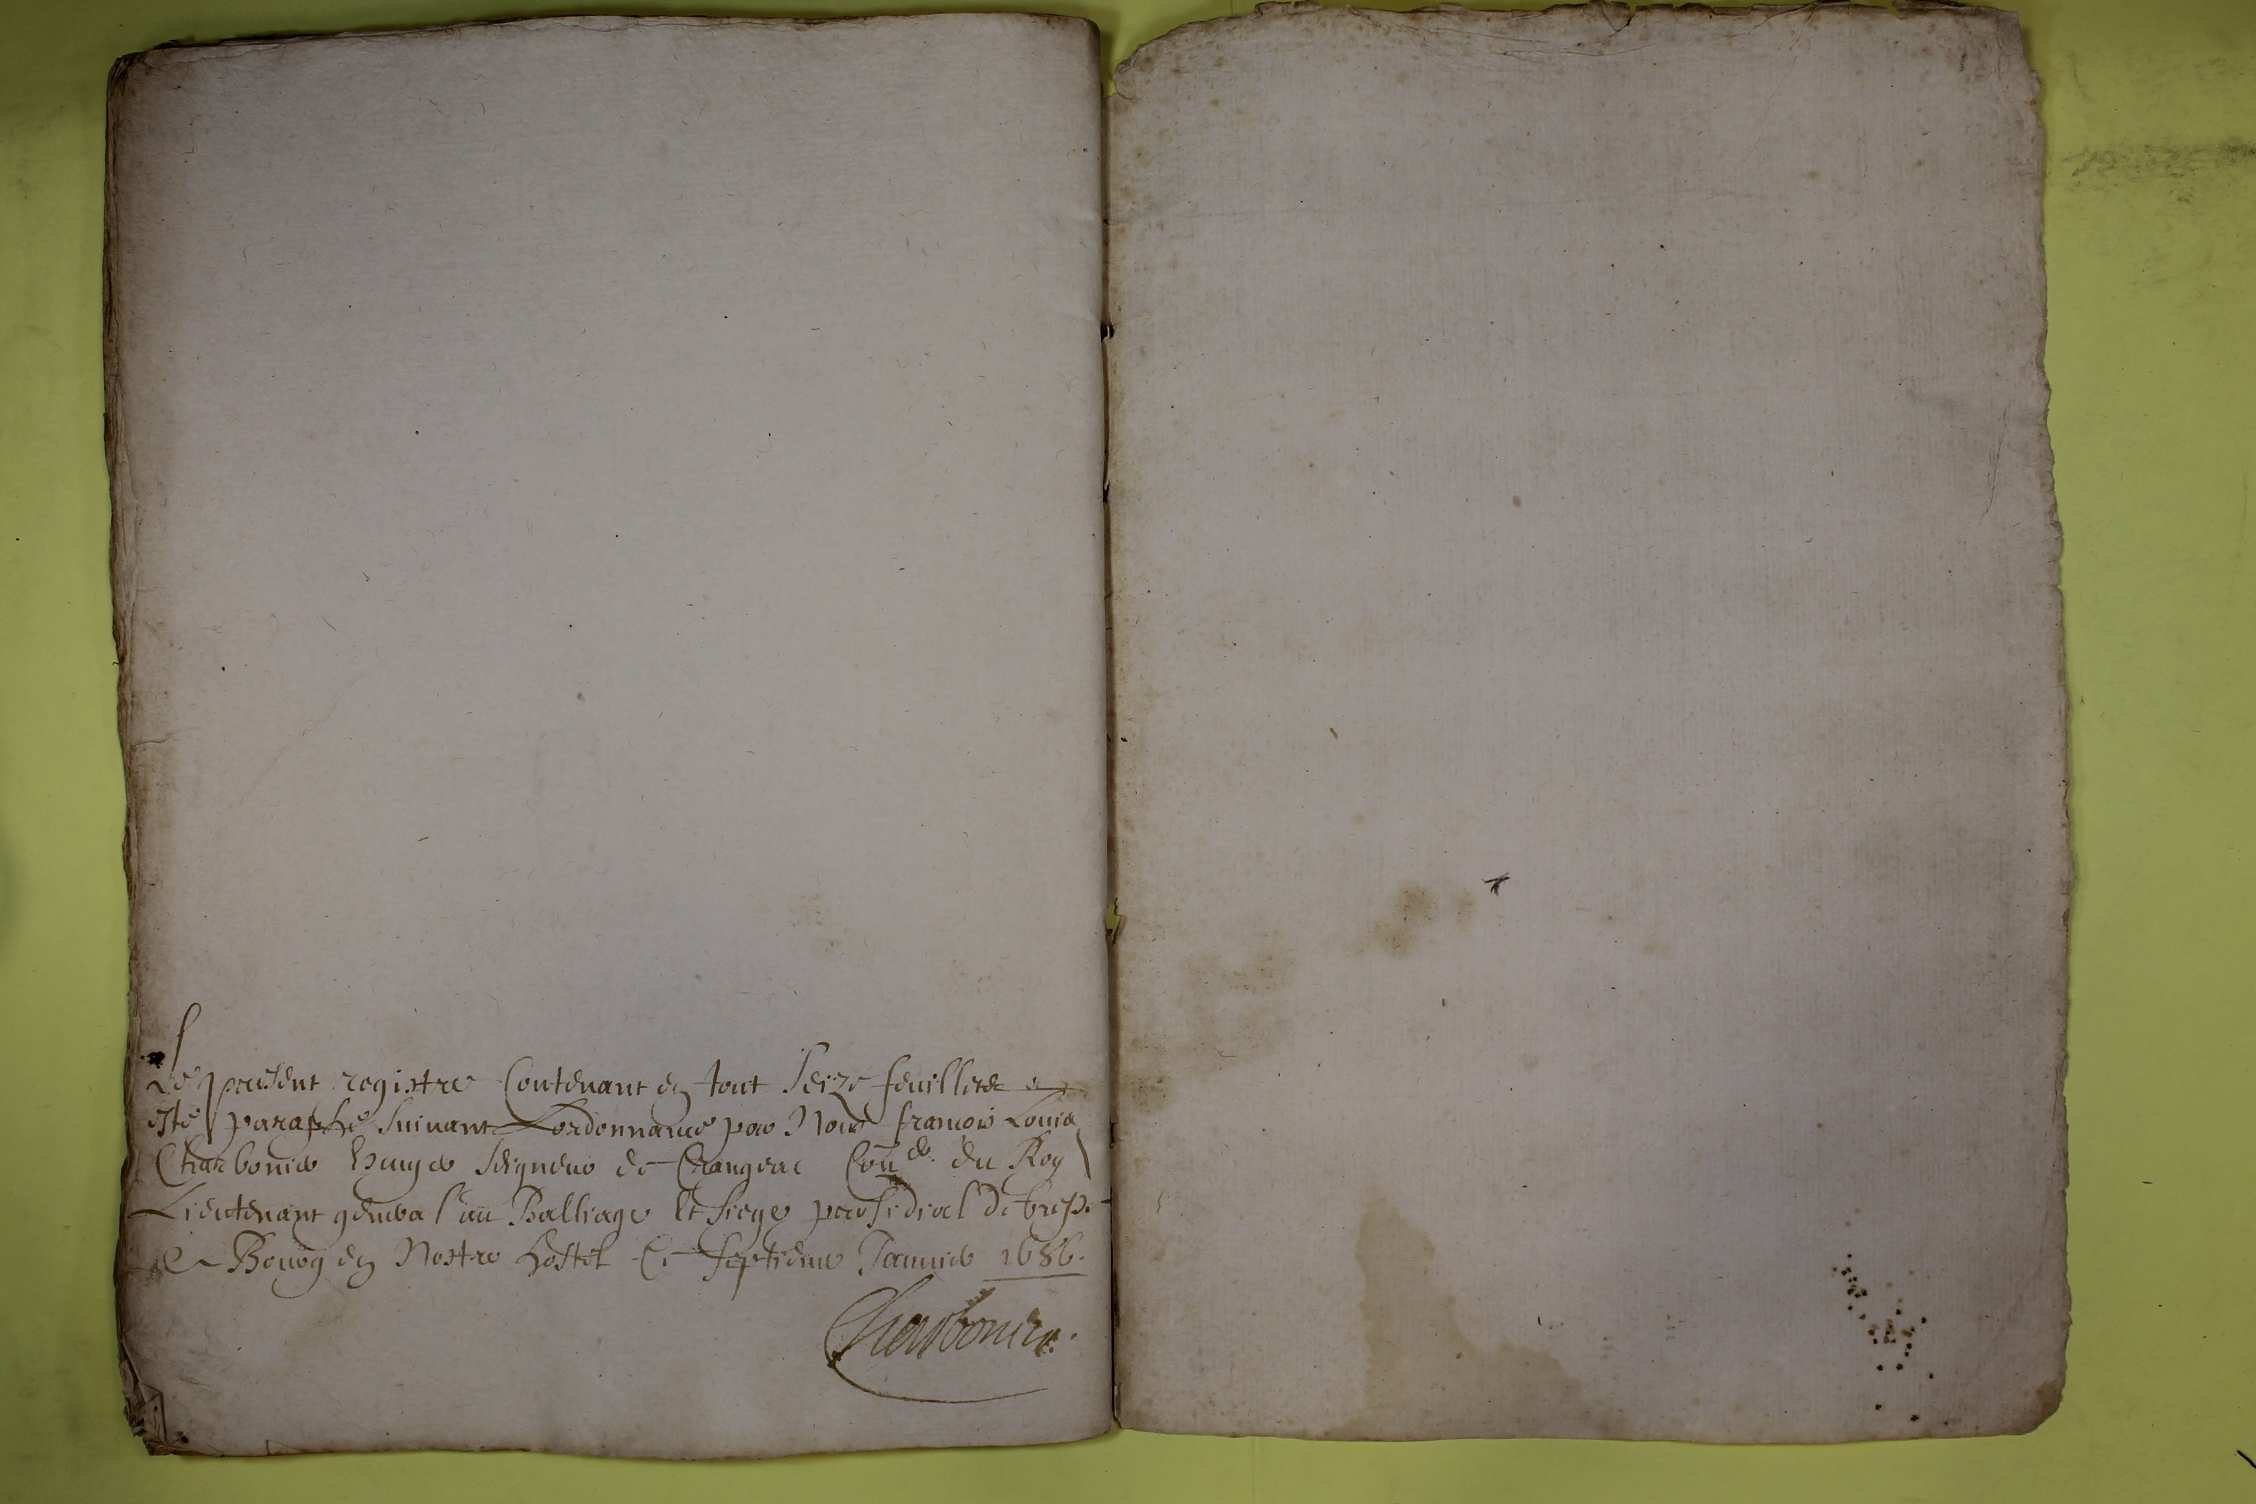 Le present registre Contenant en tout Seize feuillets a
esté paraphé Suivant Lordonnance par Nous francois Louis
Charbonier Seigneur de Crangeac Con.er du Roy
Lieutenant general au Balliage et Siege presidial de bresse
A Bourg en Nostre hostel Ce septieme Januier 1686.
Charbonier.